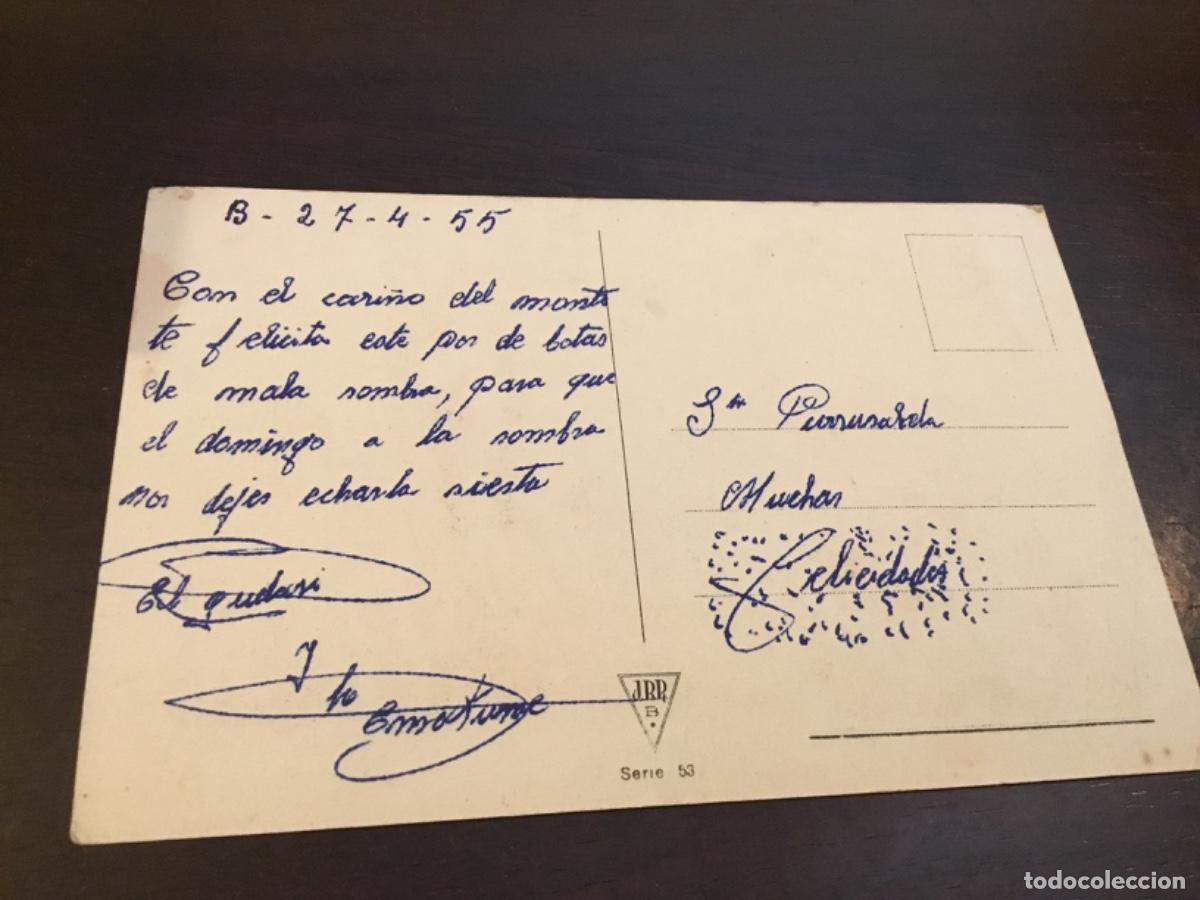 B - 27-4-55
Con el cariño del monte
te felicita este par de botas
de mala sombra, para que
el domingo a la sombra
nos dejes echarla siesta
El gudari
Y
la
Emakume
Purrusalda
Muchas
Felicidades
J.B.R.
B.
Serie 53
todocoleccion